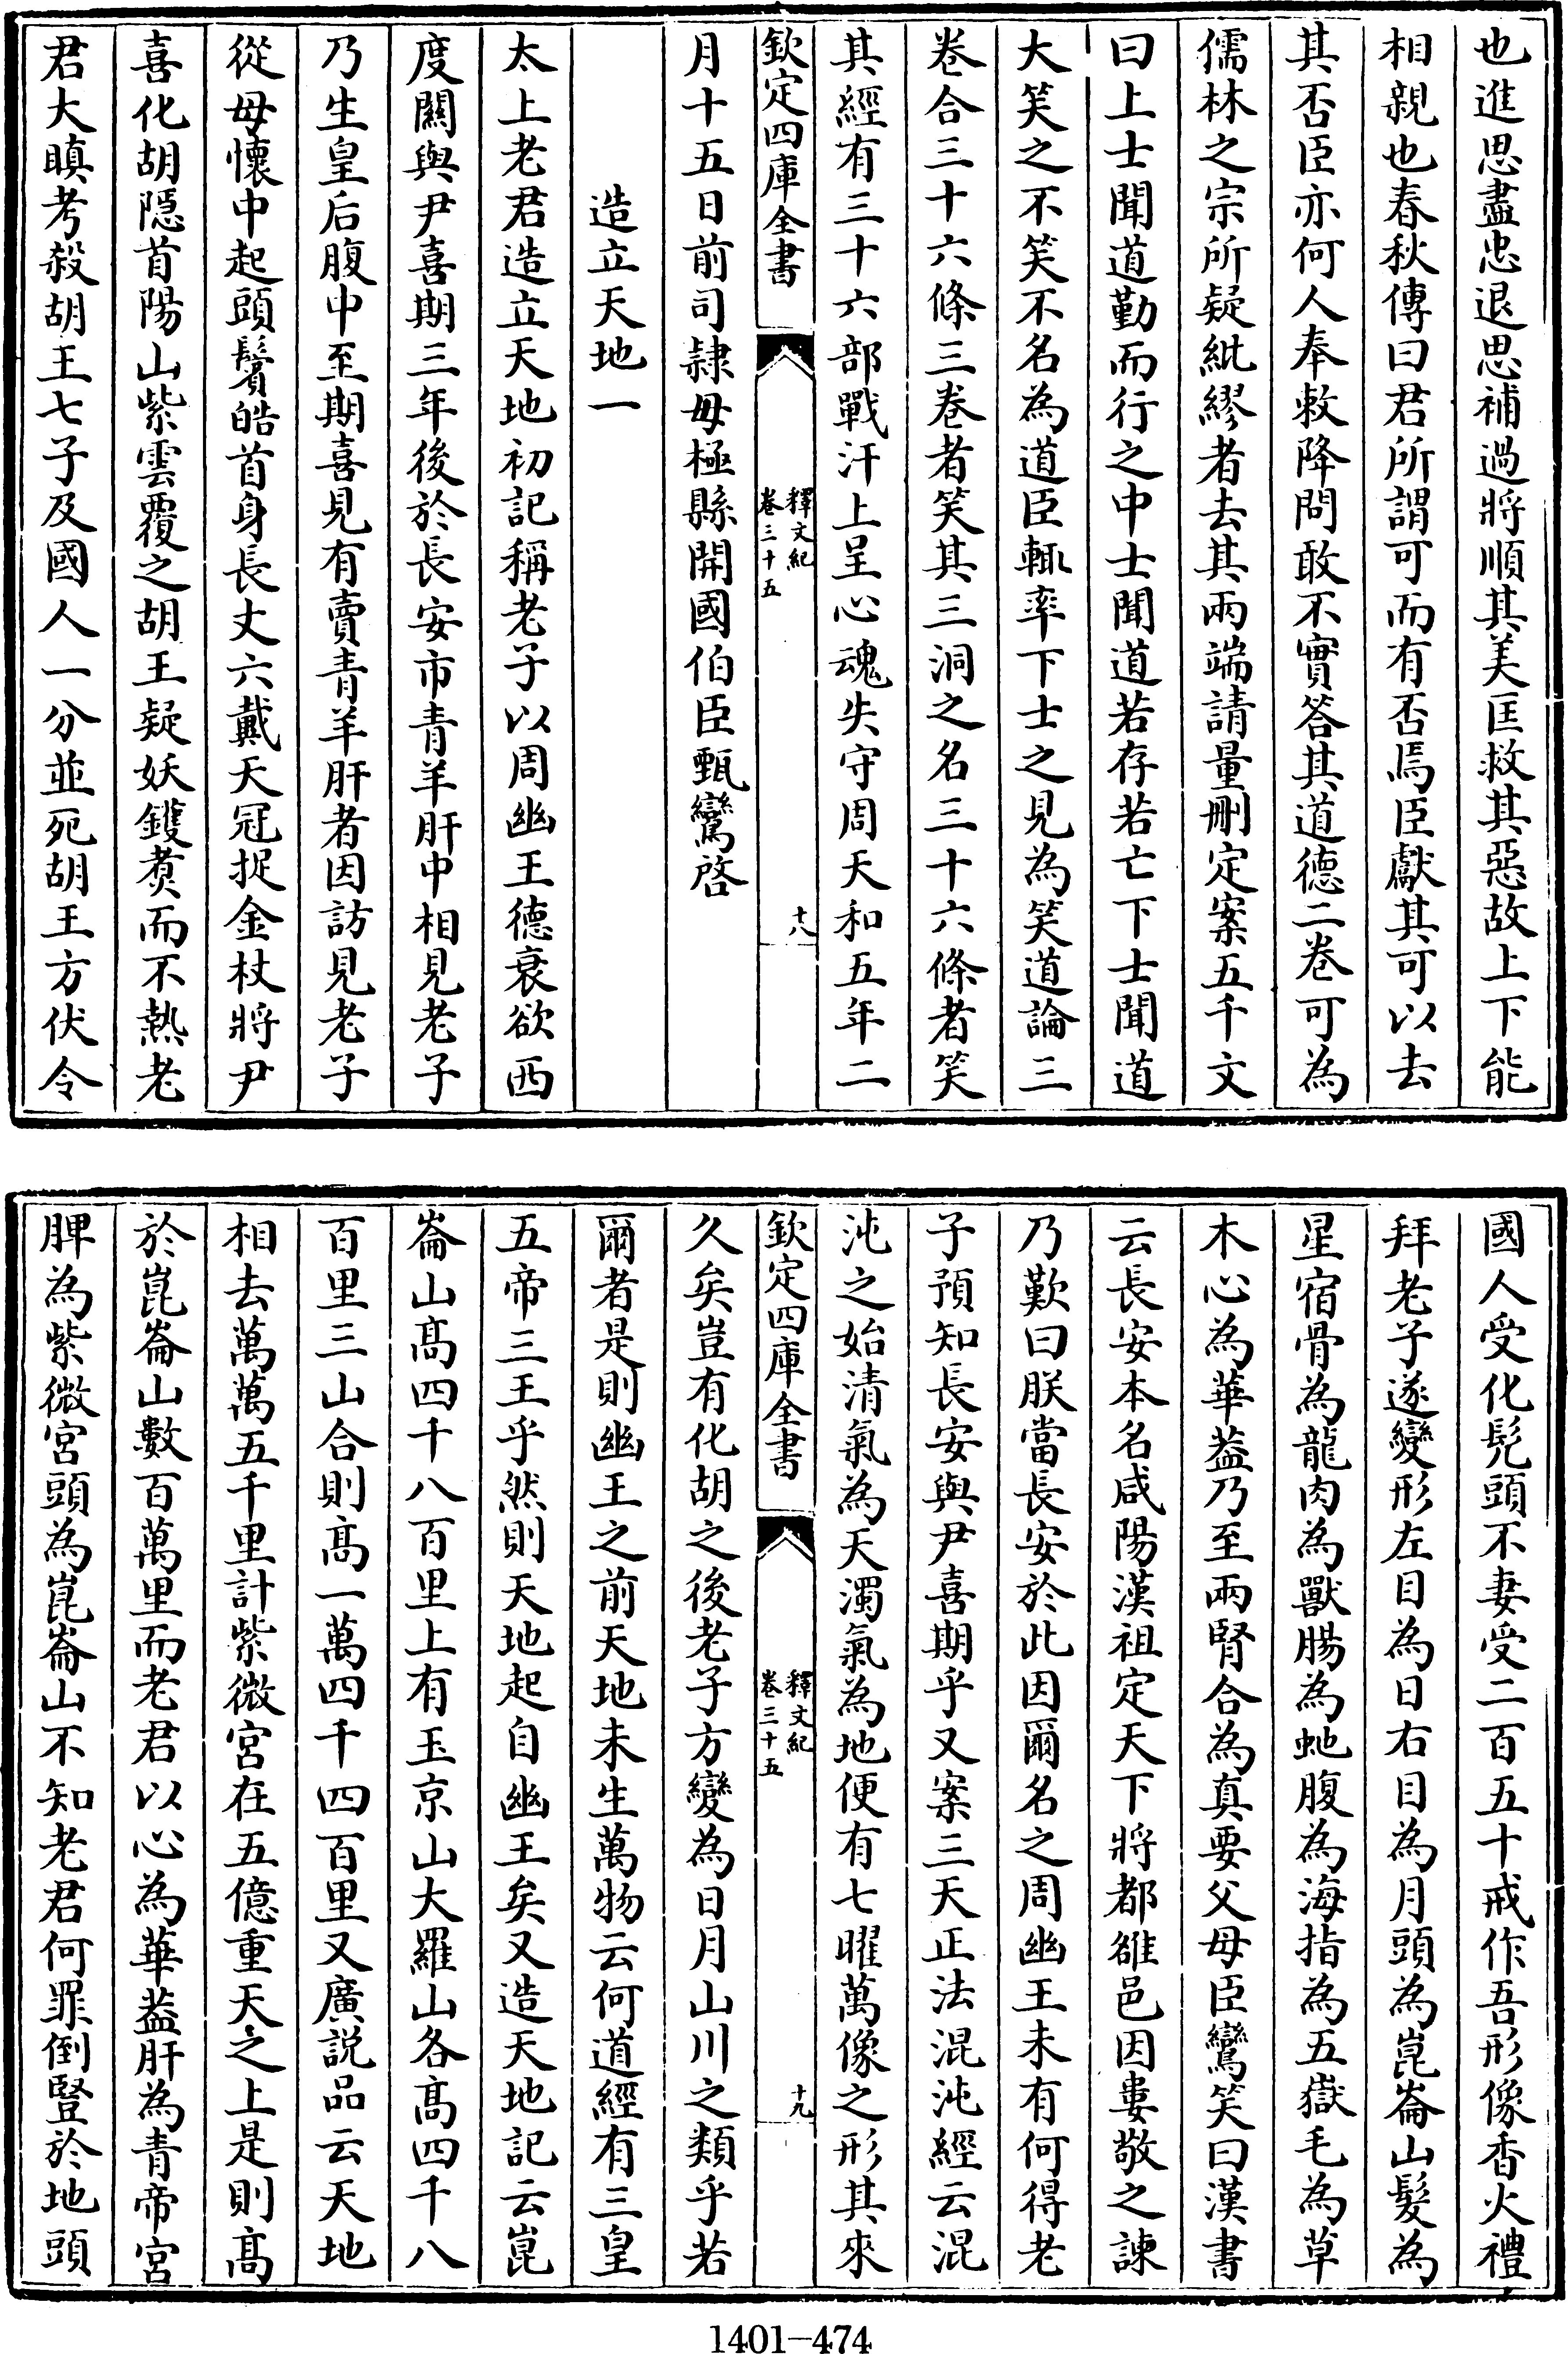 也進思盡忠退思補過將順其美匡救其惡故上下能
相親也春秋傳曰君所謂可而有否焉臣獻其可以去
其否臣亦何人奉敕降問敢不實答其道德二卷可為
儒林之宗所疑紕繆者去其兩端請量刪定案五千文
曰上士聞道勤而行之中士聞道若存若亡下士聞道
大笑之不笑不名為道臣輒率下士之見為笑道論三
卷合三十六條三卷者笑其三洞之名三十六條者笑
其經有三十六部戰汗上呈心魂失守周天和五年二
欽定四庫全書
釋文紀
卷三十五
十八
月十五日前司隷毋極縣開國伯臣甄鸞啓
造立天地一
太上老君造立天地初記稱老子以周幽王德衰欲西
度關與尹喜期三年後於長安市青羊肝中相見老子
乃生皇后腹中至期喜見有賣青羊肝者因訪見老子
從母懷中起頭鬢皓首身長丈六戴天冠捉金杖將尹
喜化胡隱首陽山紫雲覆之胡王疑妖鑊煑而不熱老
君大瞋考殺胡王七子及國人一分並死胡王方伏令
國人受化髠頭不妻受二百五十戒作吾形像香火禮
拜老子遂變形左目為日右目為月頭為崑崙山髮為
星宿骨為龍肉為獸腸為虵腹為海指為五嶽毛為草
木心為華葢乃至兩腎合為真要父母臣鸞笑曰漢書
云長安本名咸陽漢祖定天下將都雒邑因婁敬之諫
乃歎曰朕當長安於此因爾名之周幽王未有何得老
子預知長安與尹喜期乎又案三天正法混沌經云混
沌之始清氣為天濁氣為地便有七曜萬像之形其來
欽定四庫全書
釋文紀
卷三十五
十九
久矣豈有化胡之後老子方變為日月山川之類乎若
爾者是則幽王之前天地未生萬物云何道經有三皇
五帝三王乎然則天地起自幽王矣又造天地記云崑
崙山髙四千八百里上有玉京山大羅山各髙四千八
百里三山合則髙一萬四千四百里又廣説品云天地
相去萬萬五千里計紫微宮在五億重天之上是則髙
於崑崙山數百萬里而老君以心為華葢肝為青帝宮
脾為紫微宮頭為崑崙山不知老君何罪倒豎於地頭
1401-474